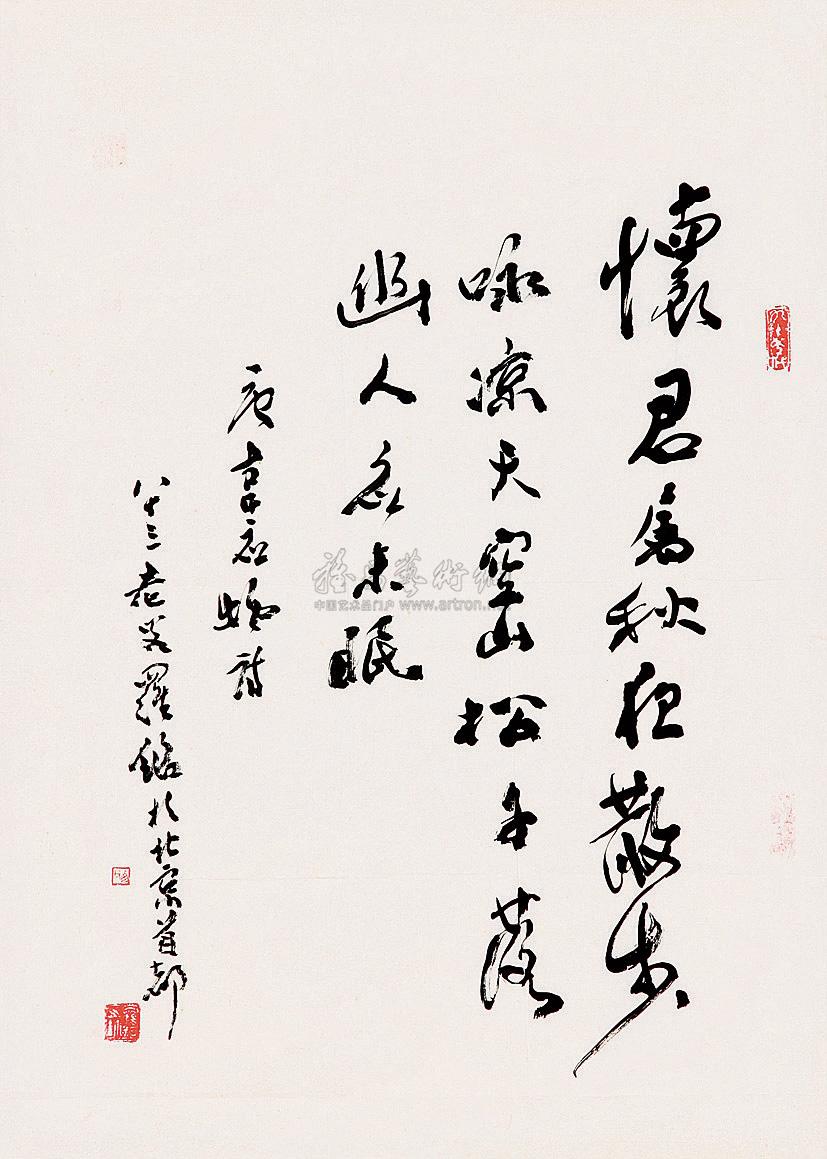 懷君屬秋夜散步
咏凉天空山松子落
幽人應未眠
唐韋應物詩
八十三老叟羅銘於北京首都
雅昌藝術網
中国艺术品门户 www.artron.net